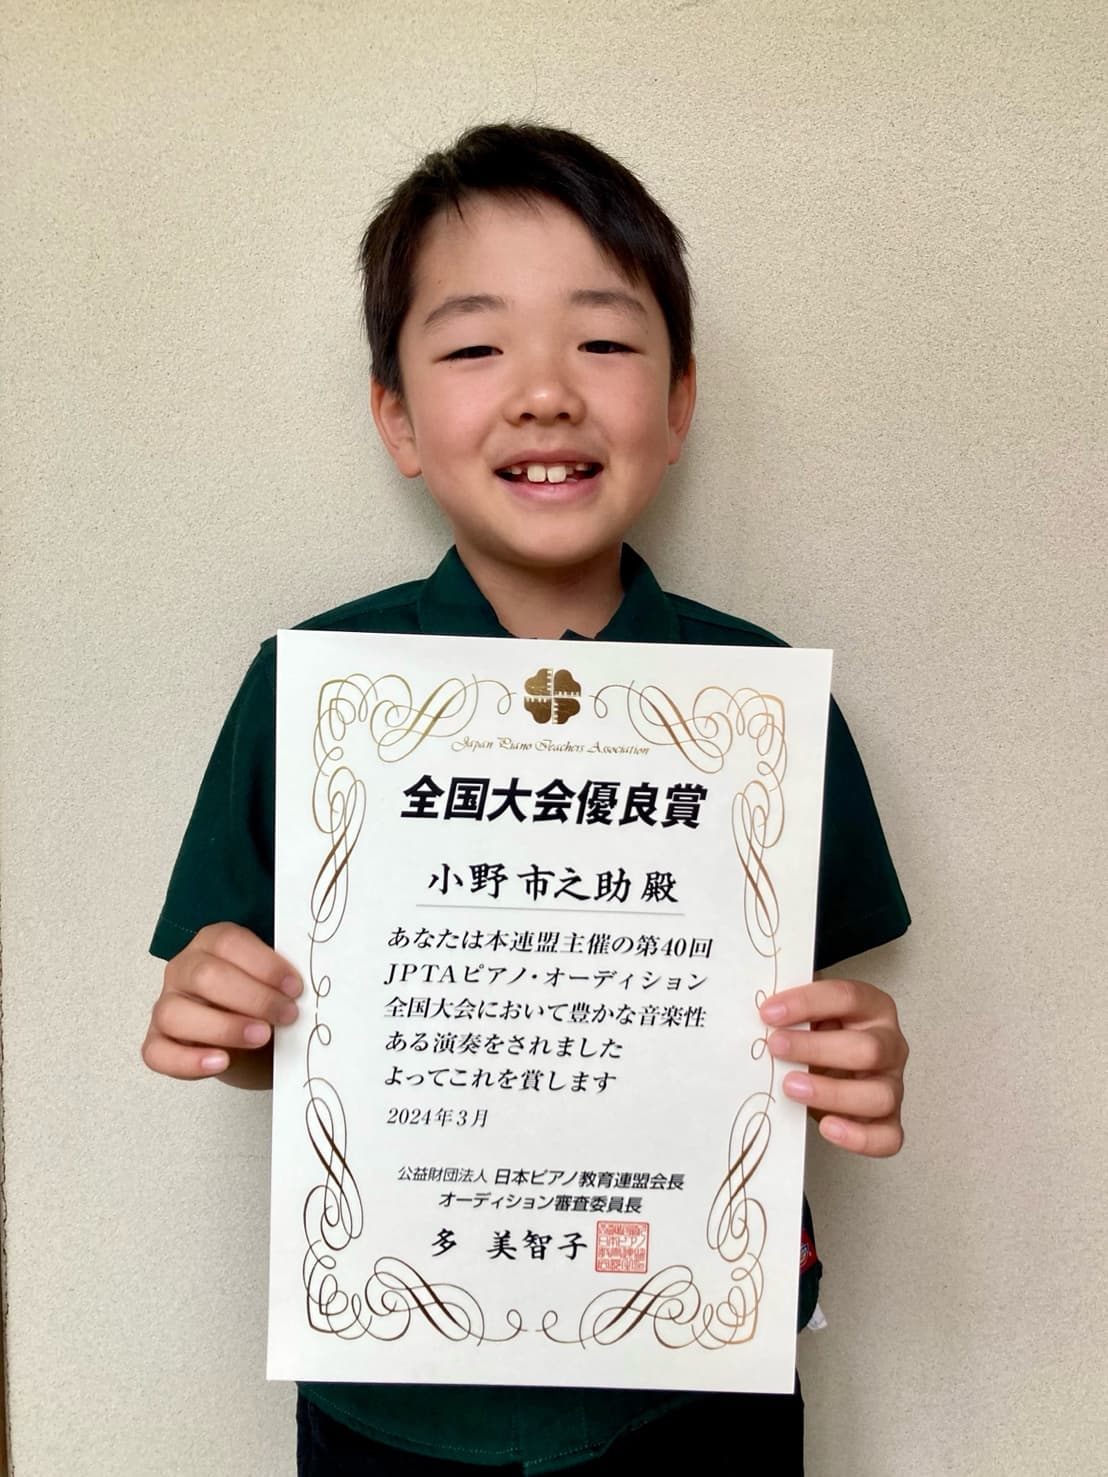 Japan Piano Teachers Association
全国大会優良賞
小野 市之助 殿
あなたは本連盟主催の第40回
JPTAピアノ・オーディション
全国大会において豊かな音楽性
ある演奏をされました
よってこれを賞します
2024年3月
公益財団法人 日本ピアノ教育連盟会長
オーディション審査委員長
多 美智子